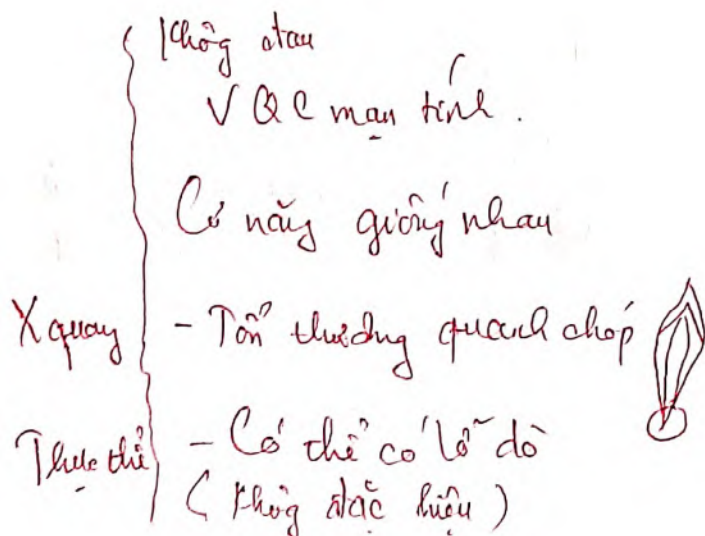 Không đau
VQC mạn tính.
Cơ năng giống nhau
X quang - Tổn thương quanh chóp
Thực thể - Có thể có lỗ dò
(Không đặc hiệu)